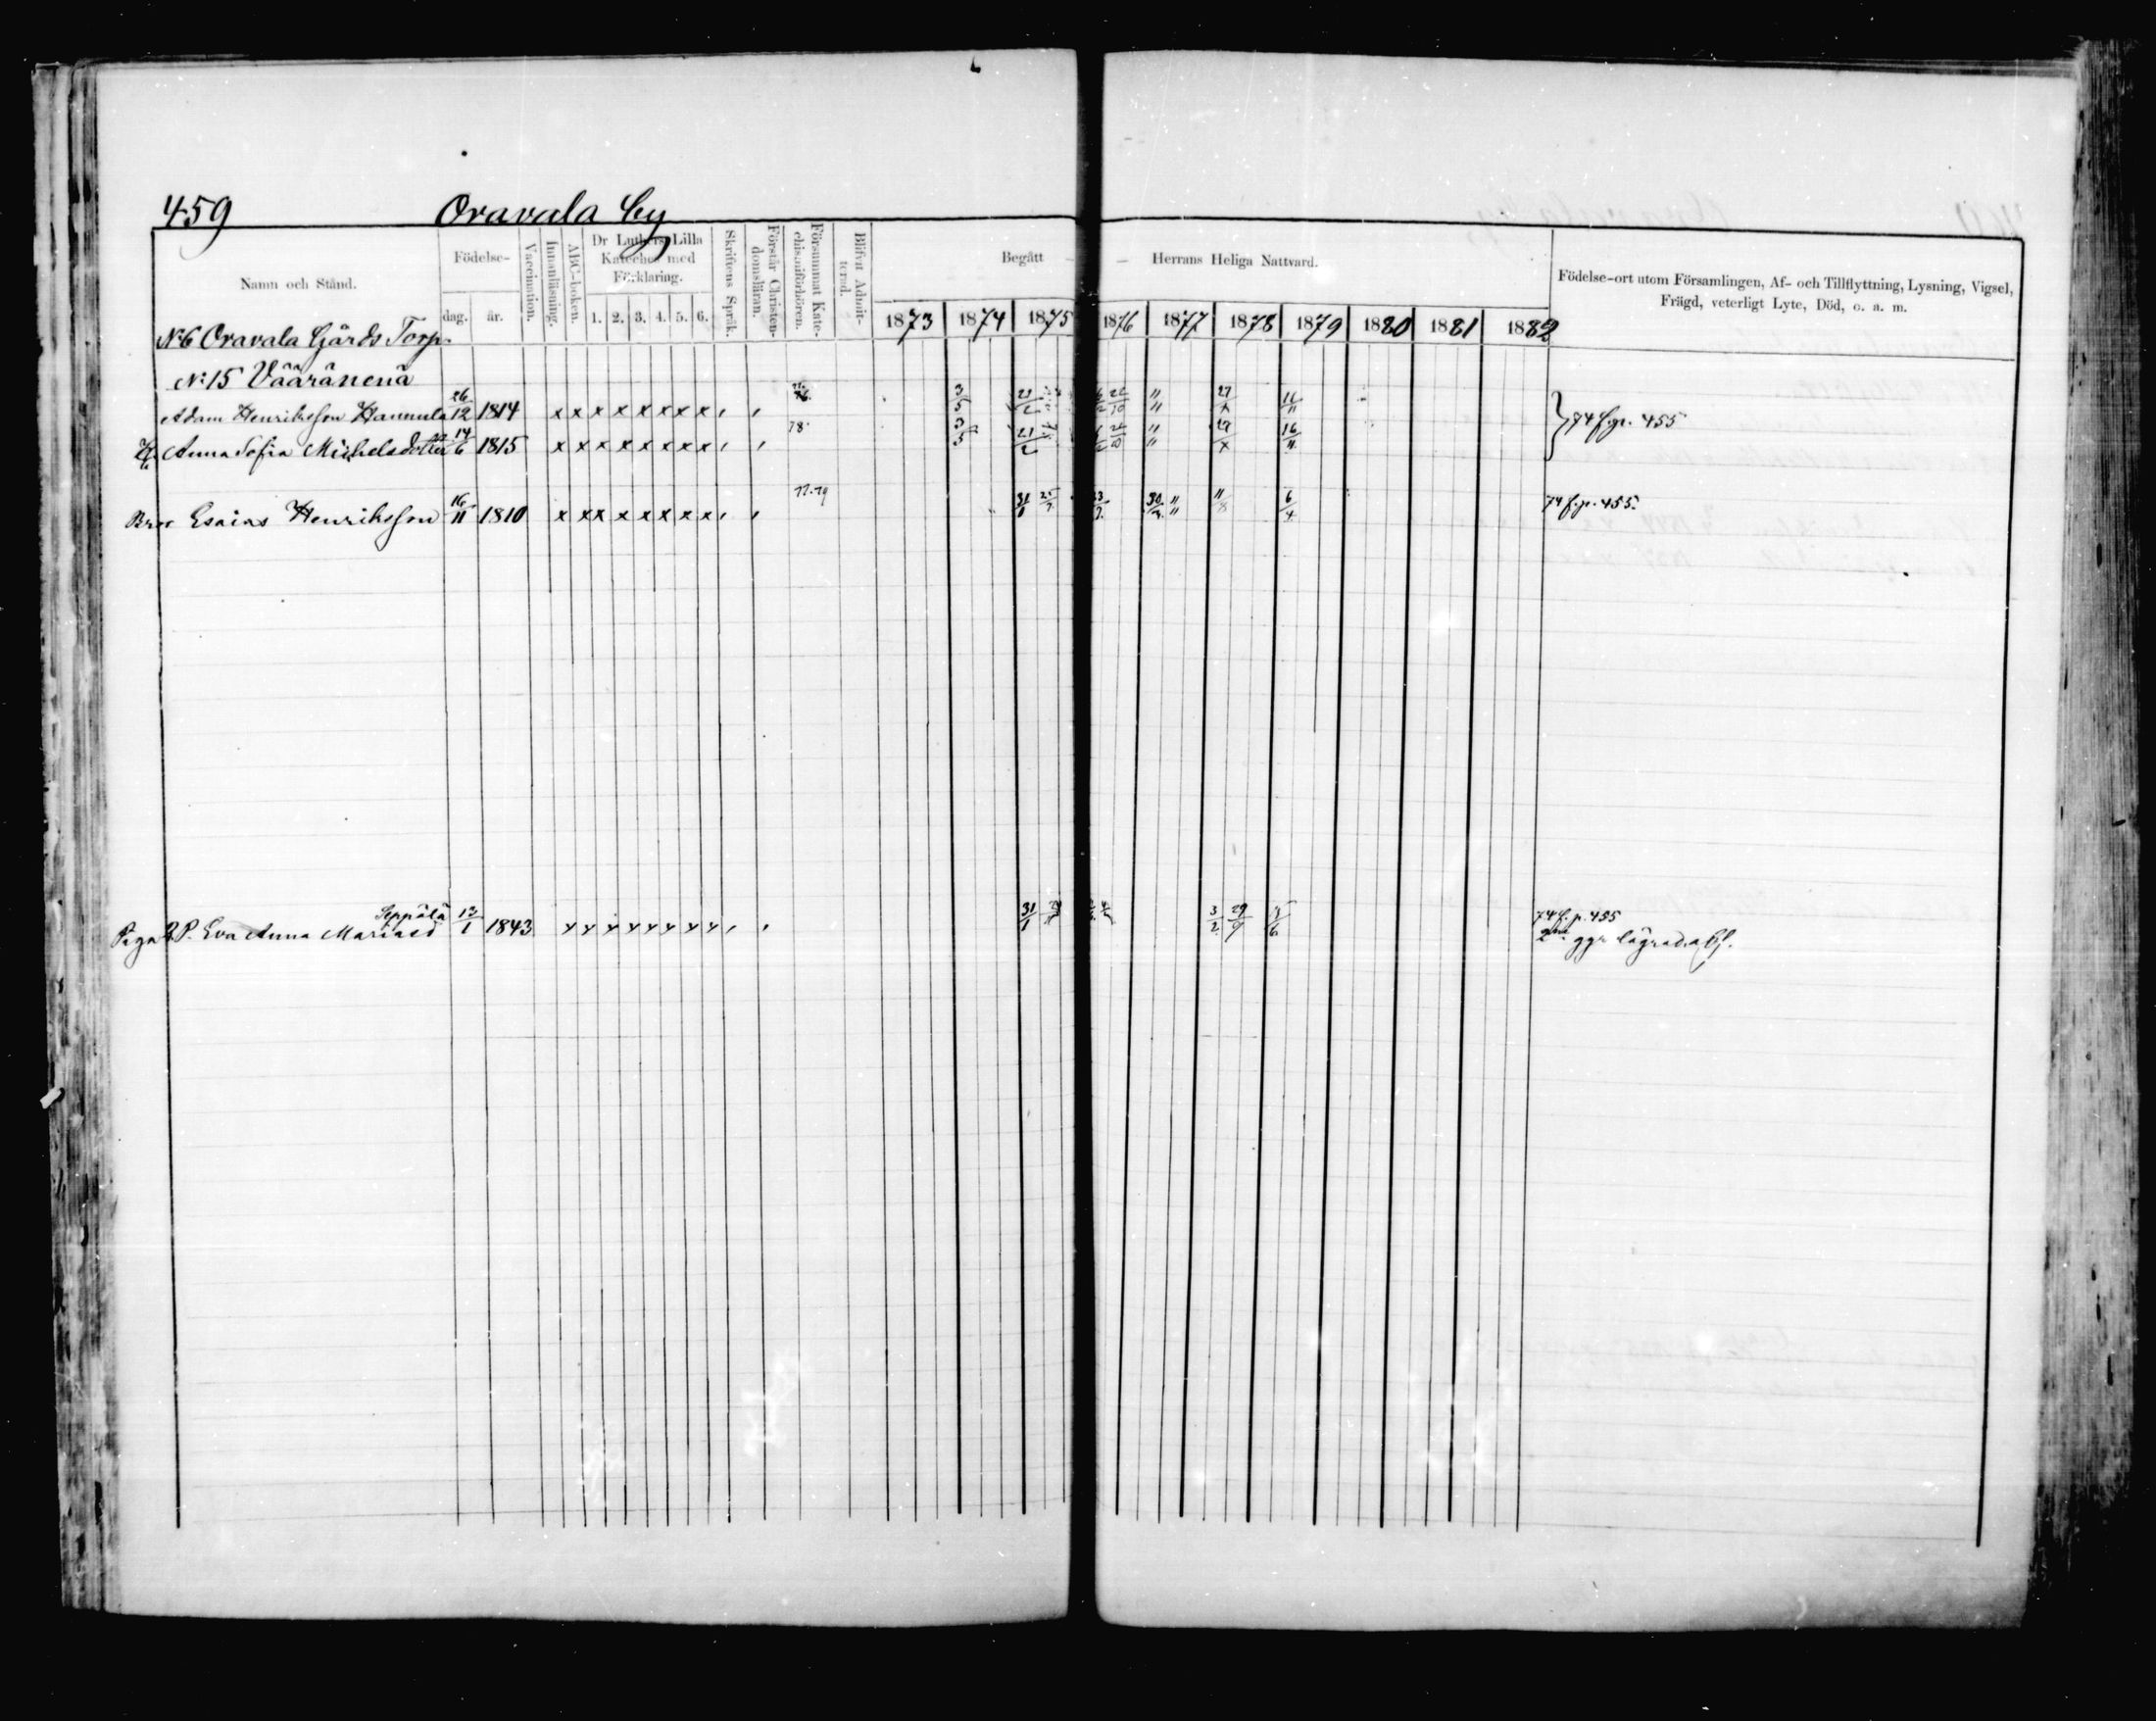 459 Oravala by
Namn och Stånd.
Födelse-
dag. år.
Vaccination.
Innanläsning.
ABC-boken.
Dr Luthers Lilla
Kateches med
Förklaring.
1. 2. 3. 4. 5. 6.
Skriftens Språk.
Förstår Christen-
domsläran.
Försummat Kate-
chismiförhören.
Blifvit Admit-
terad.
Begått Herrans Heliga Nattvard.
1873 1874 1875 1876 1877 1878 1879 1880 1881 1882
Födelse-ort utom Församlingen, Af- och Tillflyttning, Lysning, Vigsel,
Frägd, veterligt Lyte, Död, o. a. m.
No 6 Oravala Gårds Torp
No: 15 Vääränenä
Adam Henriksson Hannula 26/12 1814 x x x x x x x x 3/5 21/2 " 27/x } 74 f. p. 455
H. Anna Sofia Michelsdotter 14/6 1815 x x x x x x x x 78 3/5 21/2 " 16/11
Bror Esaias Henriksson 16/11 1810 x x x x x x x x 77.79 31/1 30 " 11/8 6/4 74 f. p. 455
Seppälä
Piga Q.P. Eva Anna Mariasd 13/1 1843 x x x x x x x x 31/1 3/2 29/9 74 f. p. 455
2ne ggr lägrad